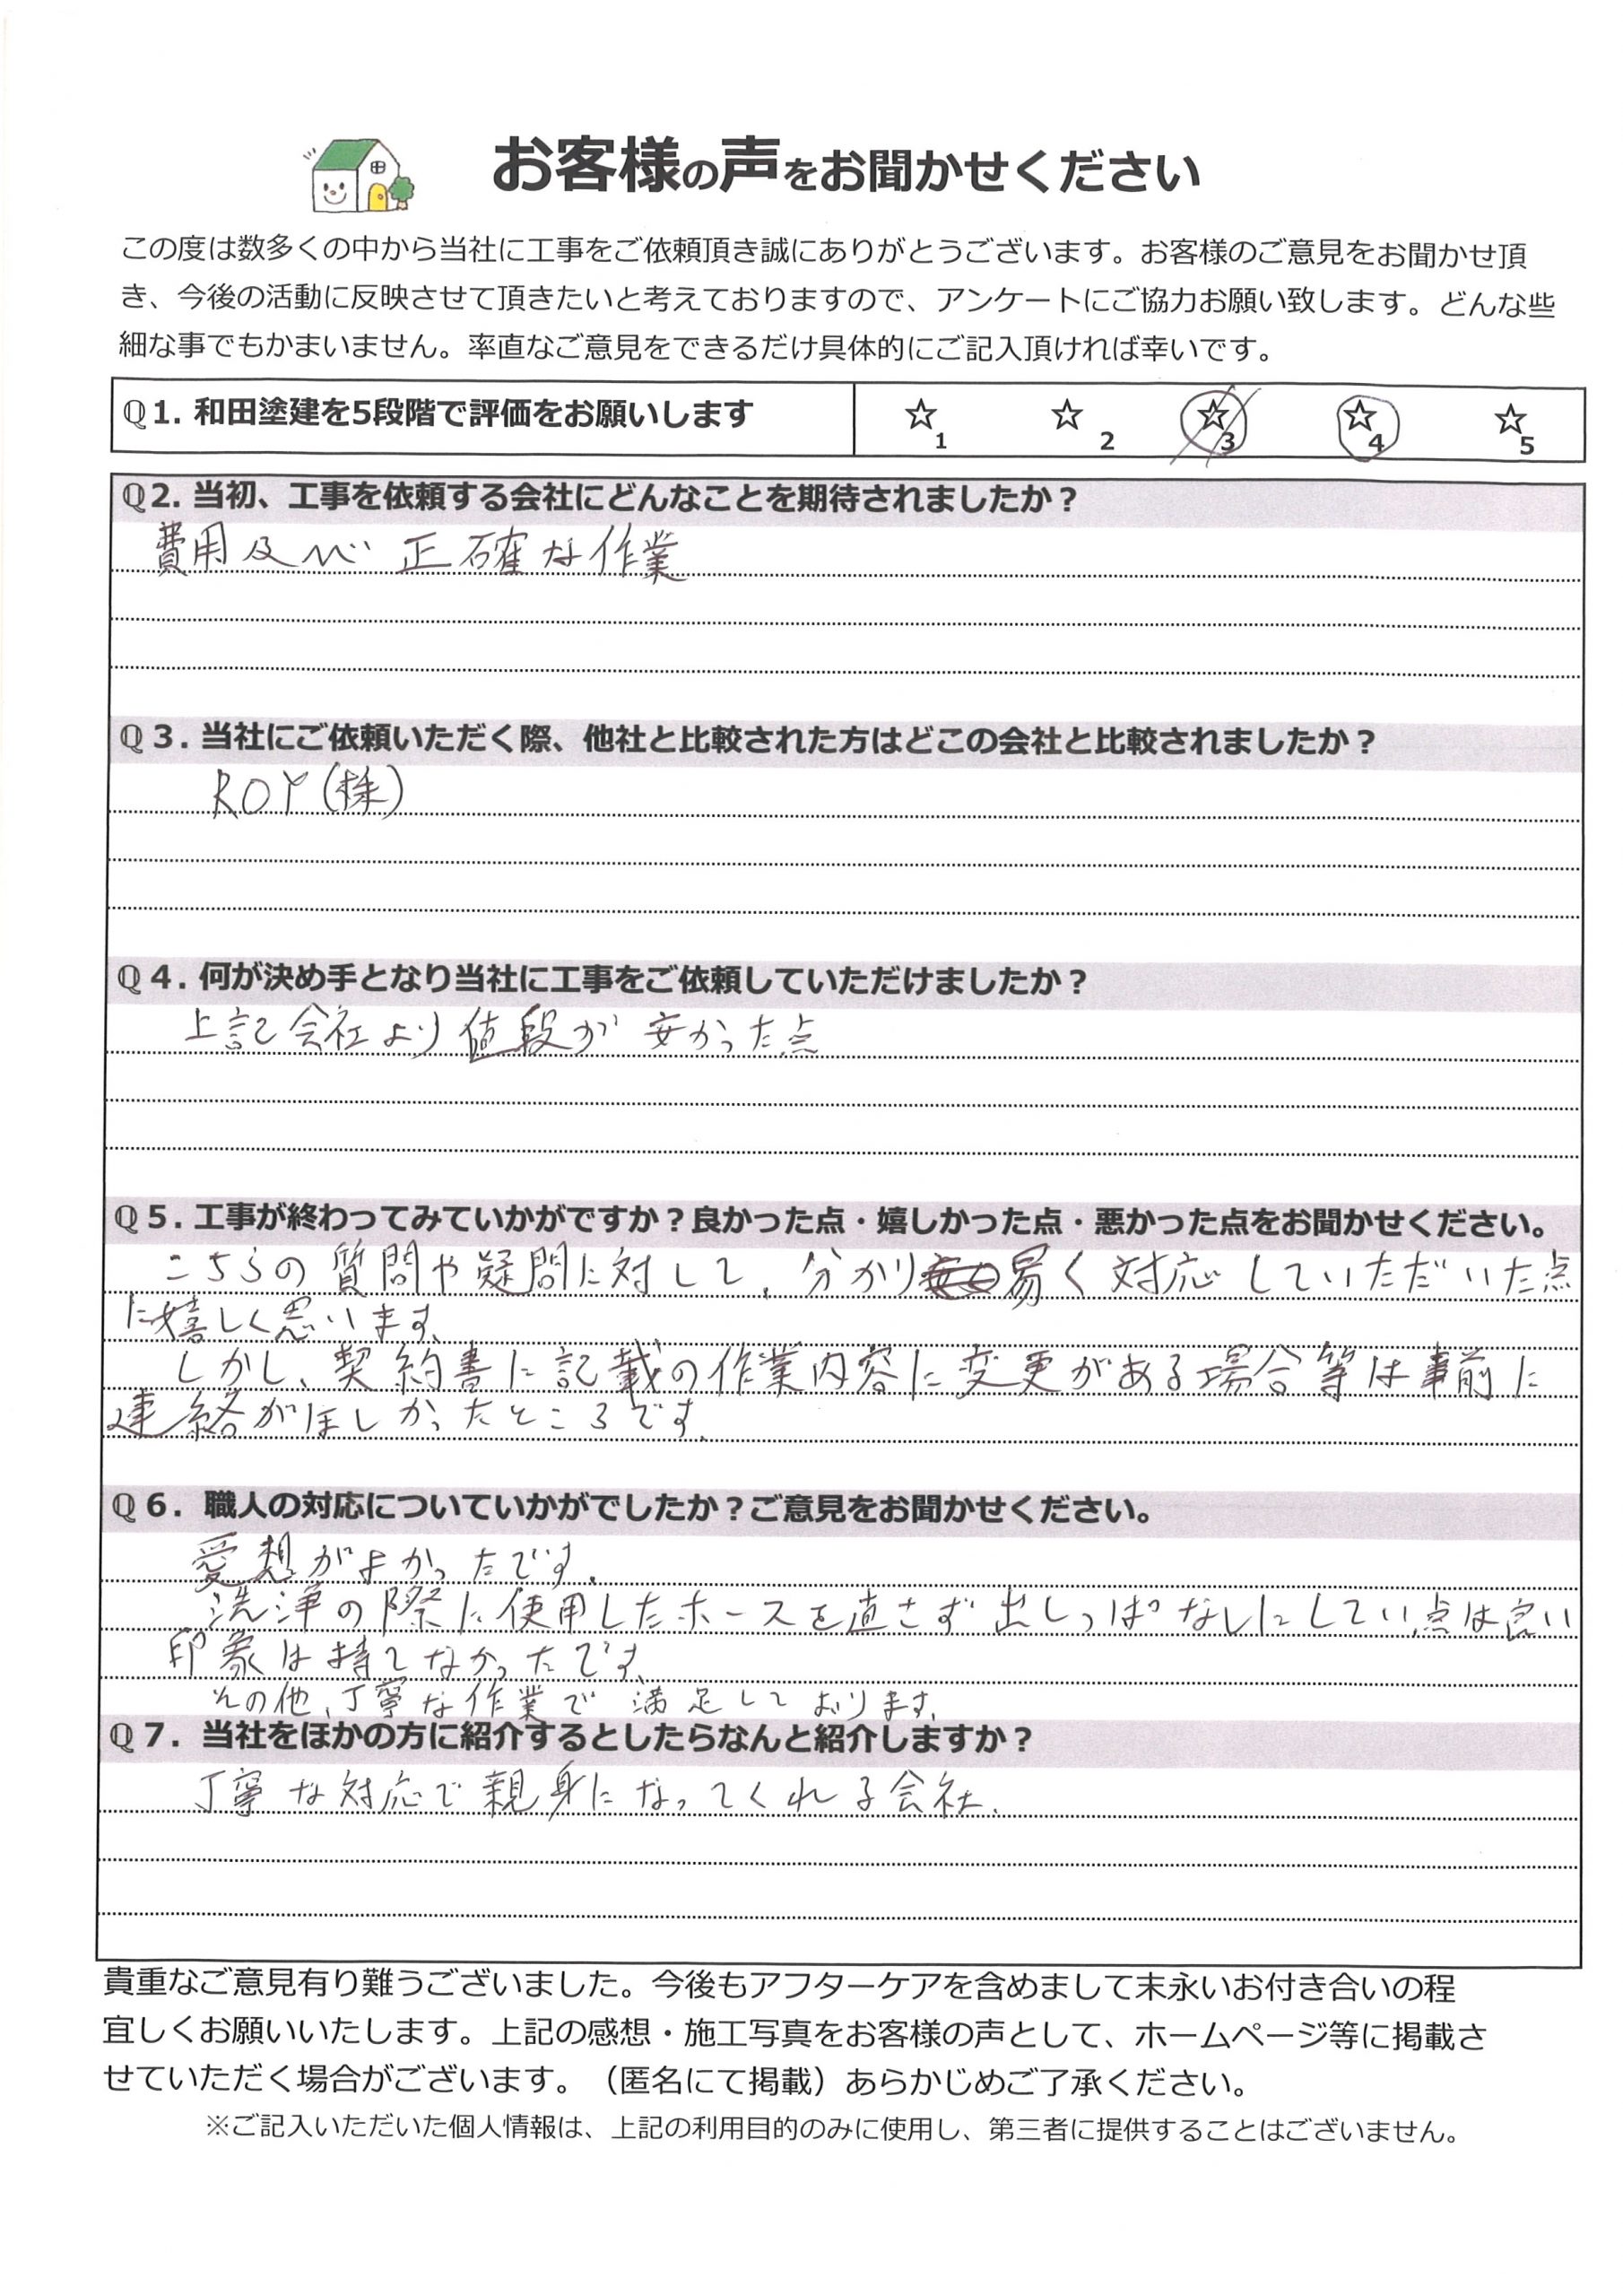 お客様の声をお聞かせください
この度は数多くの中から当社に工事をご依頼頂き誠にありがとうございます。お客様のご意見をお聞かせ頂
き、今後の活動に反映させて頂きたいと考えておりますので、アンケートにご協力お願い致します。どんな些
細な事でもかまいません。率直なご意見をできるだけ具体的にご記入頂ければ幸いです。
Q1. 和田塗建を5段階で評価をお願いします ☆1 ☆2 ☆3 ☆4 ☆5
Q2. 当初、工事を依頼する会社にどんなことを期待されましたか？
費用及び 正確な作業
Q3. 当社にご依頼いただく際、他社と比較された方はどこの会社と比較されましたか？
ROY(株)
Q4. 何が決め手となり当社に工事をご依頼していただけましたか？
上記会社より値段が安かった点
Q5. 工事が終わってみていかがですか？良かった点・嬉しかった点・悪かった点をお聞かせください。
こちらの質問や疑問に対して、分かり易く対応していただいた点
に嬉しく思います。
しかし、契約書に記載の作業内容に変更がある場合等は事前に
連絡がほしかったところです。
Q6. 職人の対応についていかがでしたか？ご意見をお聞かせください。
愛想がよかったです。
洗浄の際に使用したホースを直さず出しっぱなしにしてい点は良い
印象は持てなかったです。
その他、丁寧な作業で満足しております。
Q7. 当社をほかの方に紹介するとしたらなんと紹介しますか？
丁寧な対応で親身になってくれる会社。
貴重なご意見有り難うございました。今後もアフターケアを含めまして末永いお付き合いの程
宜しくお願いいたします。上記の感想・施工写真をお客様の声として、ホームページ等に掲載さ
せていただく場合がございます。（匿名にて掲載）あらかじめご了承ください。
※ご記入いただいた個人情報は、上記の利用目的のみに使用し、第三者に提供することはございません。